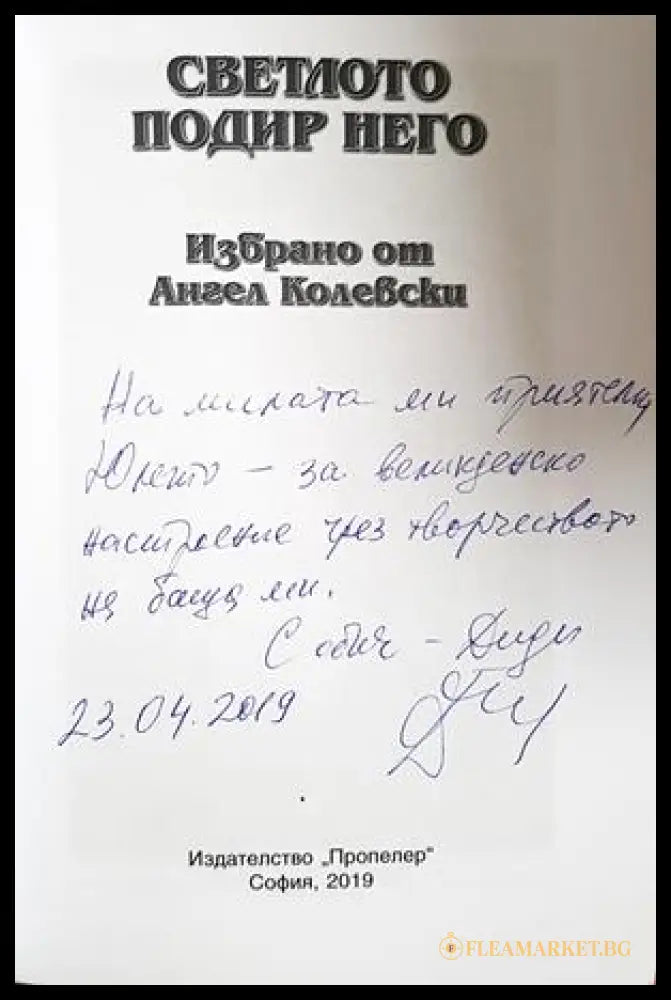 СВЕТЛОТО
ПОДИР НЕГО
Избрано от
Ангел Колевски
На милата ми приятелка
– за великденско
настроение чрез творчеството
на баща ми.
С обич – Диди
23.04.2019
Издателство „Пропелер“
София, 2019
FLEAMARKET.BG